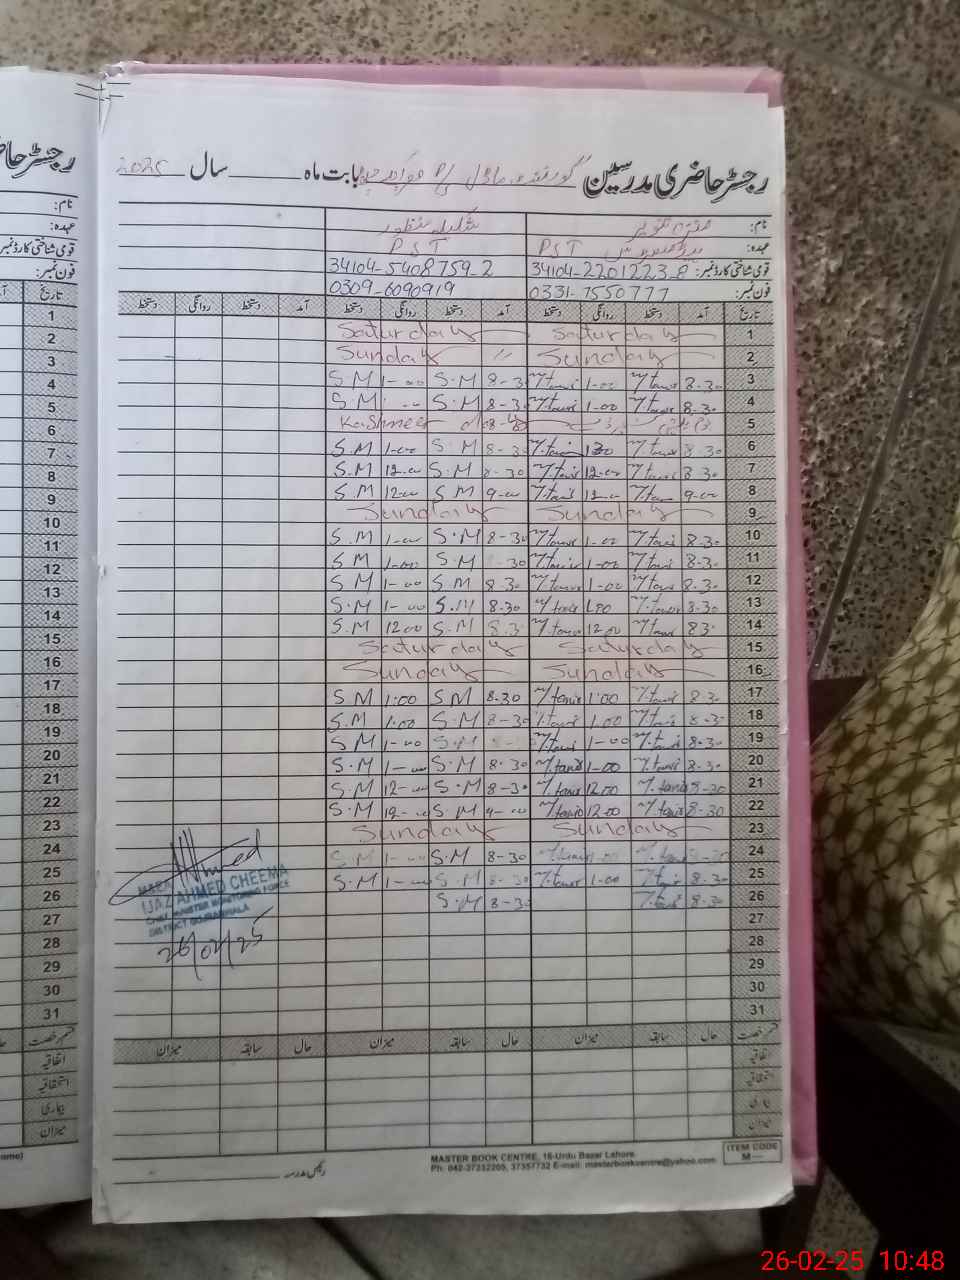 رجسٹر حاضری مدرسین گورنمنٹ ماڈل P/S بابت ماہ سال 2025
نام: شکیلہ منظور
عہدہ: PST PST
قومی شناختی کارڈ نمبر: 34104-2201223-8 34104-5408759-2
فون نمبر: 0331-7550777 0309-6090919
تاریخ آمد دستخط روانگی دستخط آمد دستخط روانگی دستخط آمد دستخط روانگی دستخط
1 Saturday Saturday
2 Sunday Sunday 〃
3 8-30 M.tanvir 1-00 M.tanvir 8-30 S.M 1-00 S.M
4 8-30 M.tanvir 1-00 M.tanvir 8-30 S.M S.M
5 Kashmeer day
6 8-30 M.tanvir 1-00 M.tanvir 8-30 S.M 1-00 S.M
7 8-30 M.tanvir 12-00 M.tanvir 8-30 S.M 12-00 S.M
8 9-00 M.tanvir 12-00 M.tanvir 9-00 S.M 12-00 S.M
9 Sunday Sunday
10 8-30 M.tanvir 1-00 M.tanvir 8-30 S.M 1-00 S.M
11 8-30 M.tanvir 1-00 M.tanvir 8-30 S.M 1-00 S.M
12 8-30 M.tanvir 1-00 M.tanvir 8-30 S.M 1-00 S.M
13 8-30 M.tanvir 1-00 M.tanvir 8-30 S.M 1-00 S.M
14 8-30 M.tanvir 12-00 M.tanvir 8-30 S.M 12-00 S.M
15 Saturday Saturday
16 Sunday Sunday
17 8-30 M.tanvir 1:00 M.tanvir 8-30 S.M 1:00 S.M
18 8-30 M.tanvir 1-00 M.tanvir 8-30 S.M 1:00 S.M
19 8-30 M.tanvir 1-00 M.tanvir S.M 1-00 S.M
20 8-30 M.tanvir 1-00 M.tanvir 8-30 S.M 1-00 S.M
21 8-30 M.tanvir 12-00 M.tanvir 8-30 S.M 12-00 S.M
22 8-30 M.tanvir 12-00 M.tanvir 9-00 S.M 12-00 S.M
23 Sunday Sunday
24 8-30 M.tanvir 1-00 M.tanvir 8-30 S.M 1-00 S.M
25 8-30 M.tanvir 1-00 M.tanvir 8-30 S.M 1-00 S.M
26 8-30 M.tanvir 8-30 S.M
27
28
29
30
31
IJAZ AHMED CHEEMA
CHIEF MINISTER MONITORING FORCE
DISTRICT GUJRANWALA
26/02/25
قسم رخصت حال سابقہ میزان حال سابقہ میزان حال سابقہ میزان
اتفاقیہ
استحقاقیہ
بیماری
میزان
رئیس مدرسہ
MASTER BOOK CENTRE, 16-Urdu Bazar Lahore
Ph: 042-37232205, 37357732 E-mail: masterbookcentre@yahoo.com
ITEM CODE
M—
رجسٹر حا
نام:
عہدہ:
قومی شناختی کارڈ نمبر
فون نمبر:
تاریخ
1
2
3
4
5
6
7
8
9
10
11
12
13
14
15
16
17
18
19
20
21
22
23
24
25
26
27
28
29
30
31
قسم رخصت
اتفاقیہ
استحقاقیہ
بیماری
میزان
26-02-25 10:48